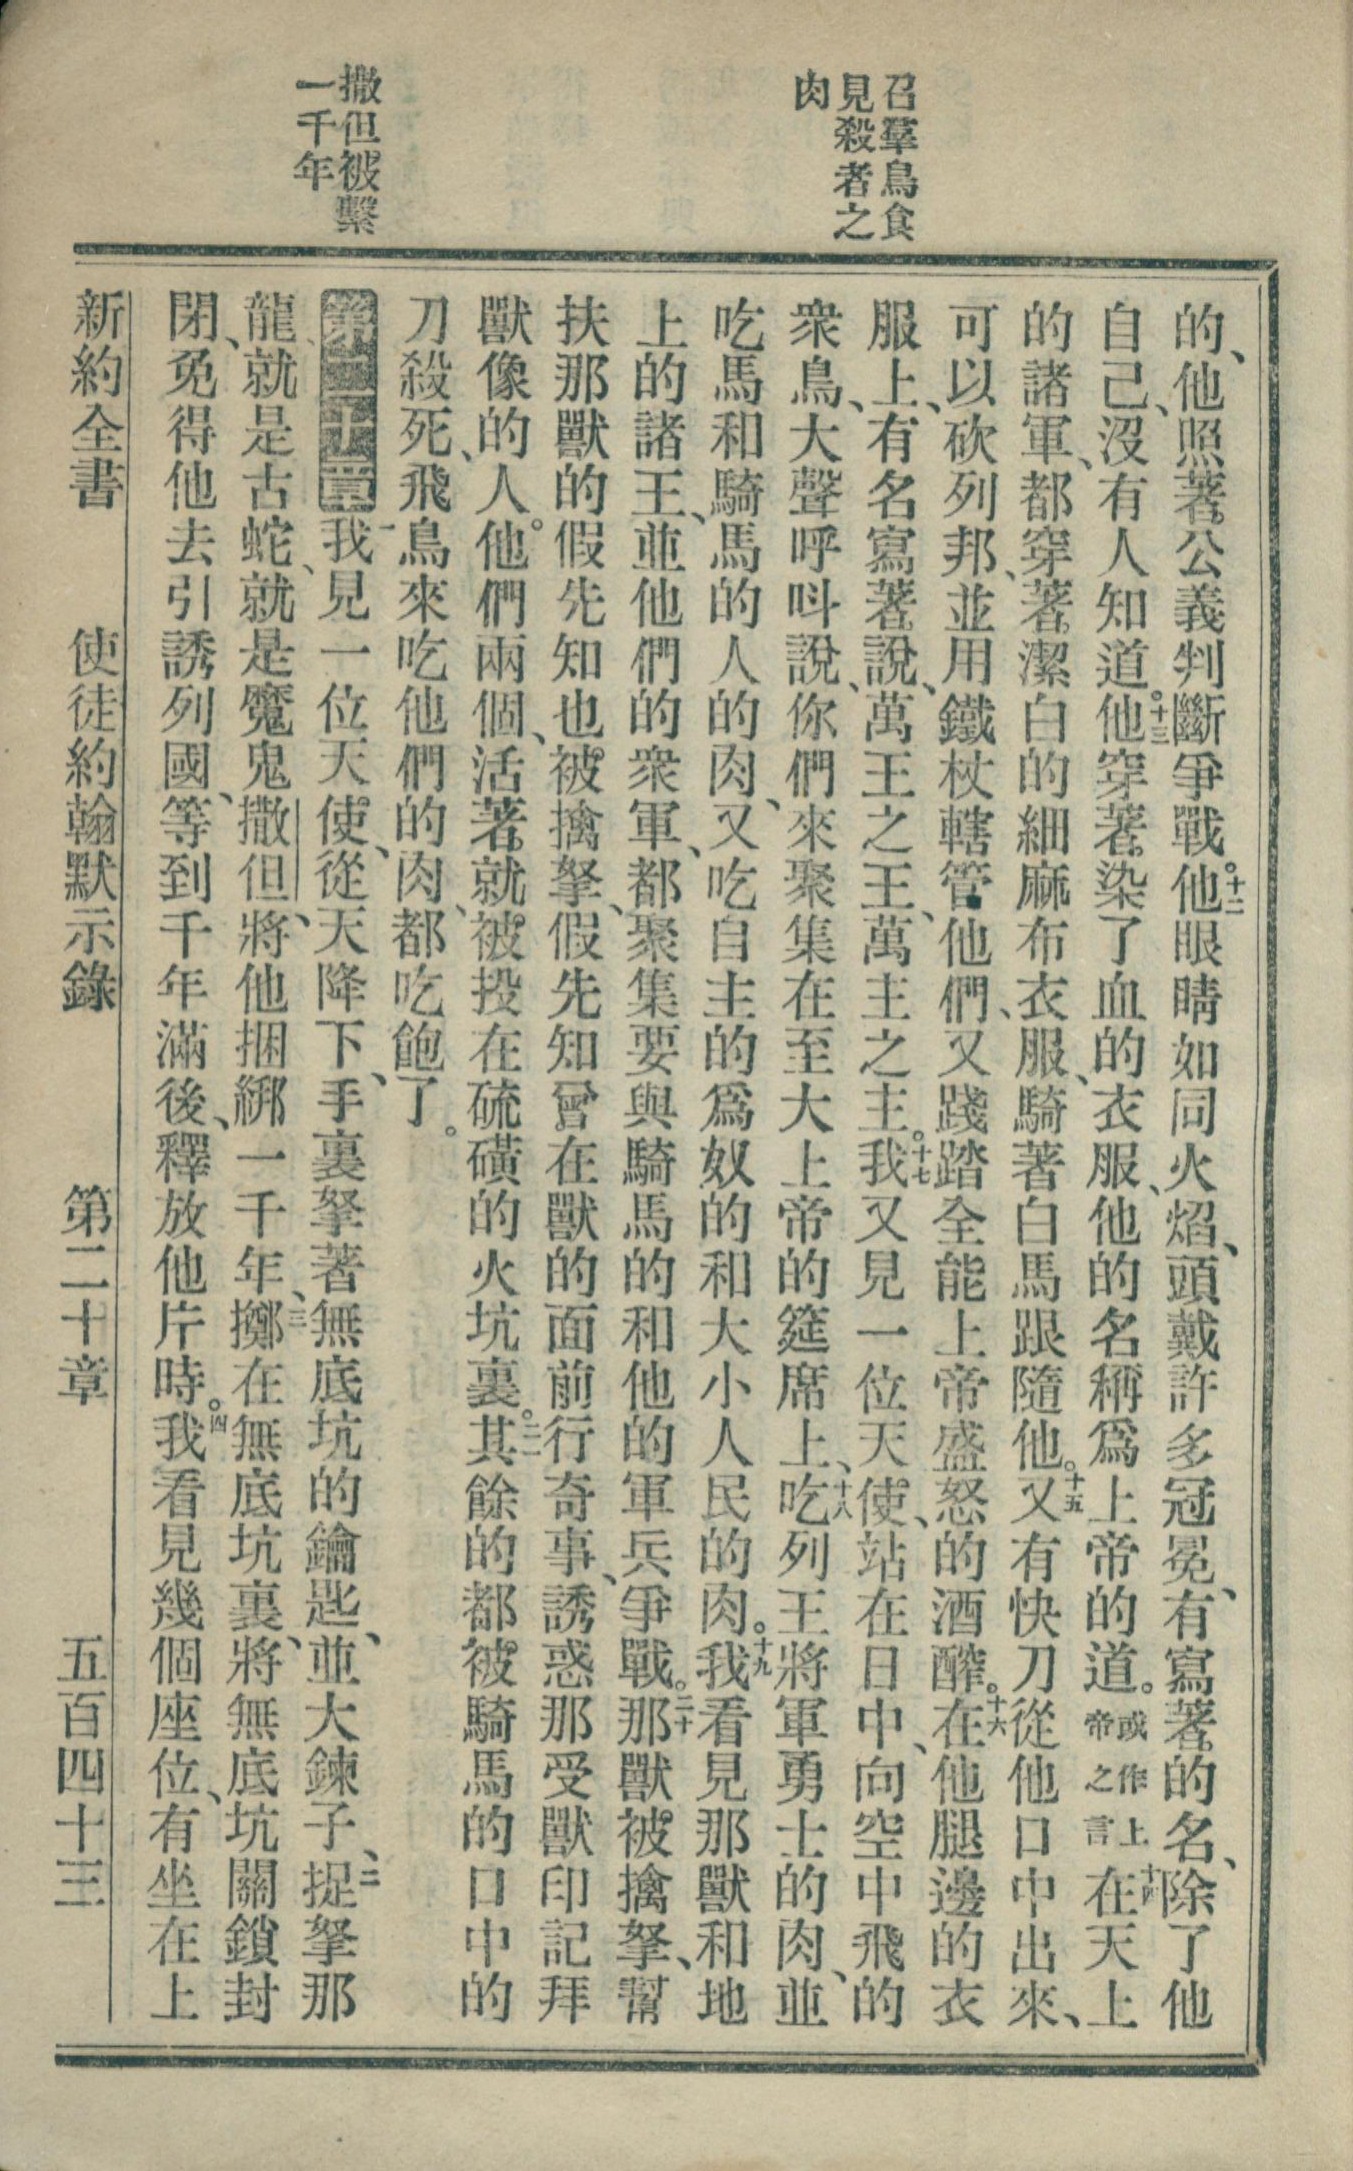 召羣鳥食
見殺者之
肉
撒但被繫
一千年
的、他照著公義判斷爭戰。十二他眼睛如同火焰、頭戴許多冠冕、有寫著的名、除了他
自己、沒有人知道。十三他穿著染了血的衣服、他的名稱爲上帝的道。或作上帝之言十四在天上
的諸軍、都穿著潔白的細麻布衣服、騎著白馬跟隨他。十五又有快刀從他口中出來、
可以砍列邦、並用鐵杖轄管他們、又踐踏全能上帝盛怒的酒醡。十六在他腿邊的衣
服上、有名寫著說、萬王之王、萬主之主。十七我又見一位天使、站在日中、向空中飛的
衆鳥、大聲呼呌說、你們來聚集在至大上帝的筵席上、十八吃列王將軍勇士的肉、並
吃馬和騎馬的人的肉、又吃自主的爲奴的和大小人民的肉。十九我看見那獸和地
上的諸王、並他們的衆軍、都聚集要與騎馬的和他的軍兵爭戰。二十那獸被擒拏、幇
扶那獸的假先知也被擒拏、假先知曾在獸的面前行奇事、誘惑那受獸印記拜
獸像的人。他們兩個、活著就被投在硫磺的火坑裏。二一其餘的都被騎馬的口中的
刀殺死、飛鳥來吃他們的肉、都吃飽了。
第二十章一我見一位天使、從天降下、手裏拏著無底坑的鑰匙、並大鍊子、二捉拏那
龍、就是古蛇、就是魔鬼撒但、將他捆綁一千年、三擲在無底坑裏、將無底坑關鎖封
閉、免得他去引誘列國、等到千年滿後、釋放他片時。四我看見幾個座位、有坐在上
新約全書　使徒約翰默示錄　第二十章　五百四十三